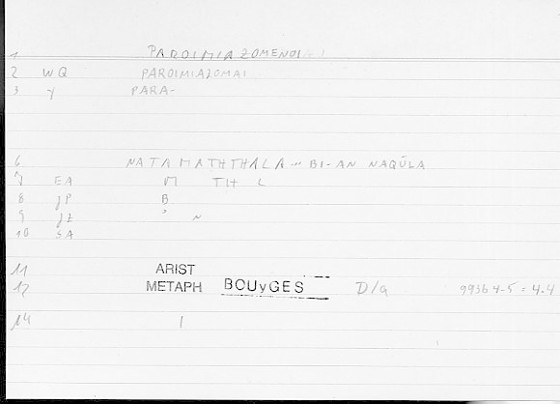 1 PAROIMIAZOMENOI
2 WQ PAROIMIAZOMAI
3 γ PARA-
6 NATAMATHTHALA ... BI-AN NAQŪLA
7 EA M TH L
8 JP B
9 JZ ʾ N
10 SA
11 ARIST
12 METAPH BOUyGES D/a 993b4-5 = 4.4
14 1